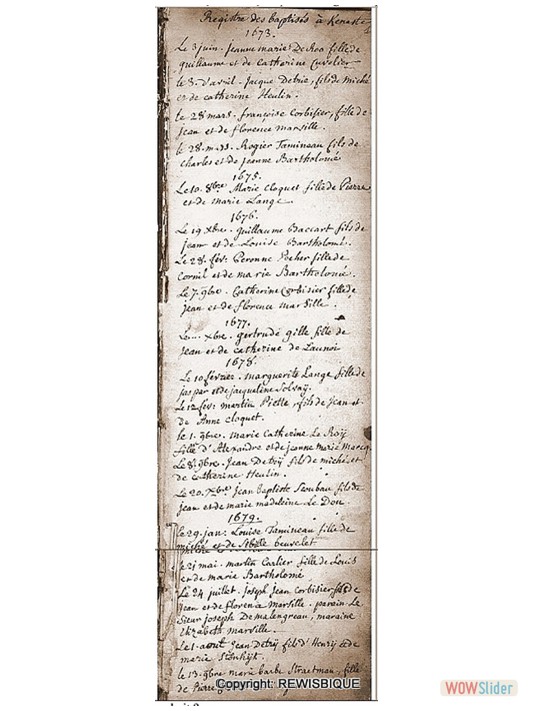 Registre des baptisés à Kenaste
1673.
Le 3 juin. jeanne marie De Roa fille de
guillaume et de Catherine Cuvelier
le 8. d'avril. Jacque Detrie, fils de miché
et de catherine Heulin.
le 28 mars. francoise Corbisier, fille de
jean et de florence marsille.
le 28. mars. Rogier Tamineau fils de
charles et de jeanne Bartholomé
1675.
Le 10. 8bre Marie Cloquet fille de Pierre
et de marie Lange
1676.
Le 19 Xbre. guillaume Baccart fils de
jean et de Louise Bartholomé.
Le 28. fév: Peronne fille de
Cornil et de marie Bartholomé.
Le 7. 9bre. Catherine Corbisier fille de
jean et de florence marsille.
1677.
Le... Xbre. gertrude gille fille de
jean et de catherine de Launoi
1678.
Le 10 février. marguerite Lange fille de
jaspar et de jacqueline
Le 12 fev: martin Pielle, fils de jean et
de Anne cloquet.
le 1. 9bre. marie Catherine Le Roÿ
fille d'Alexandre et de jeanne marie marcq.
Le 8. 9bre. Jean Detrÿ fils de miché et
de Catherine Heulin.
Le 20. Xbre jean baptiste fils de
jean et de marie madeleine Le Dou
1679.
le 29. jan: Louise Tamineau fille de
miché et de beuselet
le 21 mai. martin Carlier fille de Louis
et de marie Bartholomé
Le 24 juillet. joseph jean Corbisier fils de
jean et de florence Marsille. parain Le
Sieur joseph De malengreau, maraine
Elizabeth marsille.
Le 1. aout jean Detrÿ fils d'Henry et de
marie
le 13. 9bre marie barbe Straetman, fille
de Pierre
Copyright: REWISBIQUE
WOWSlider